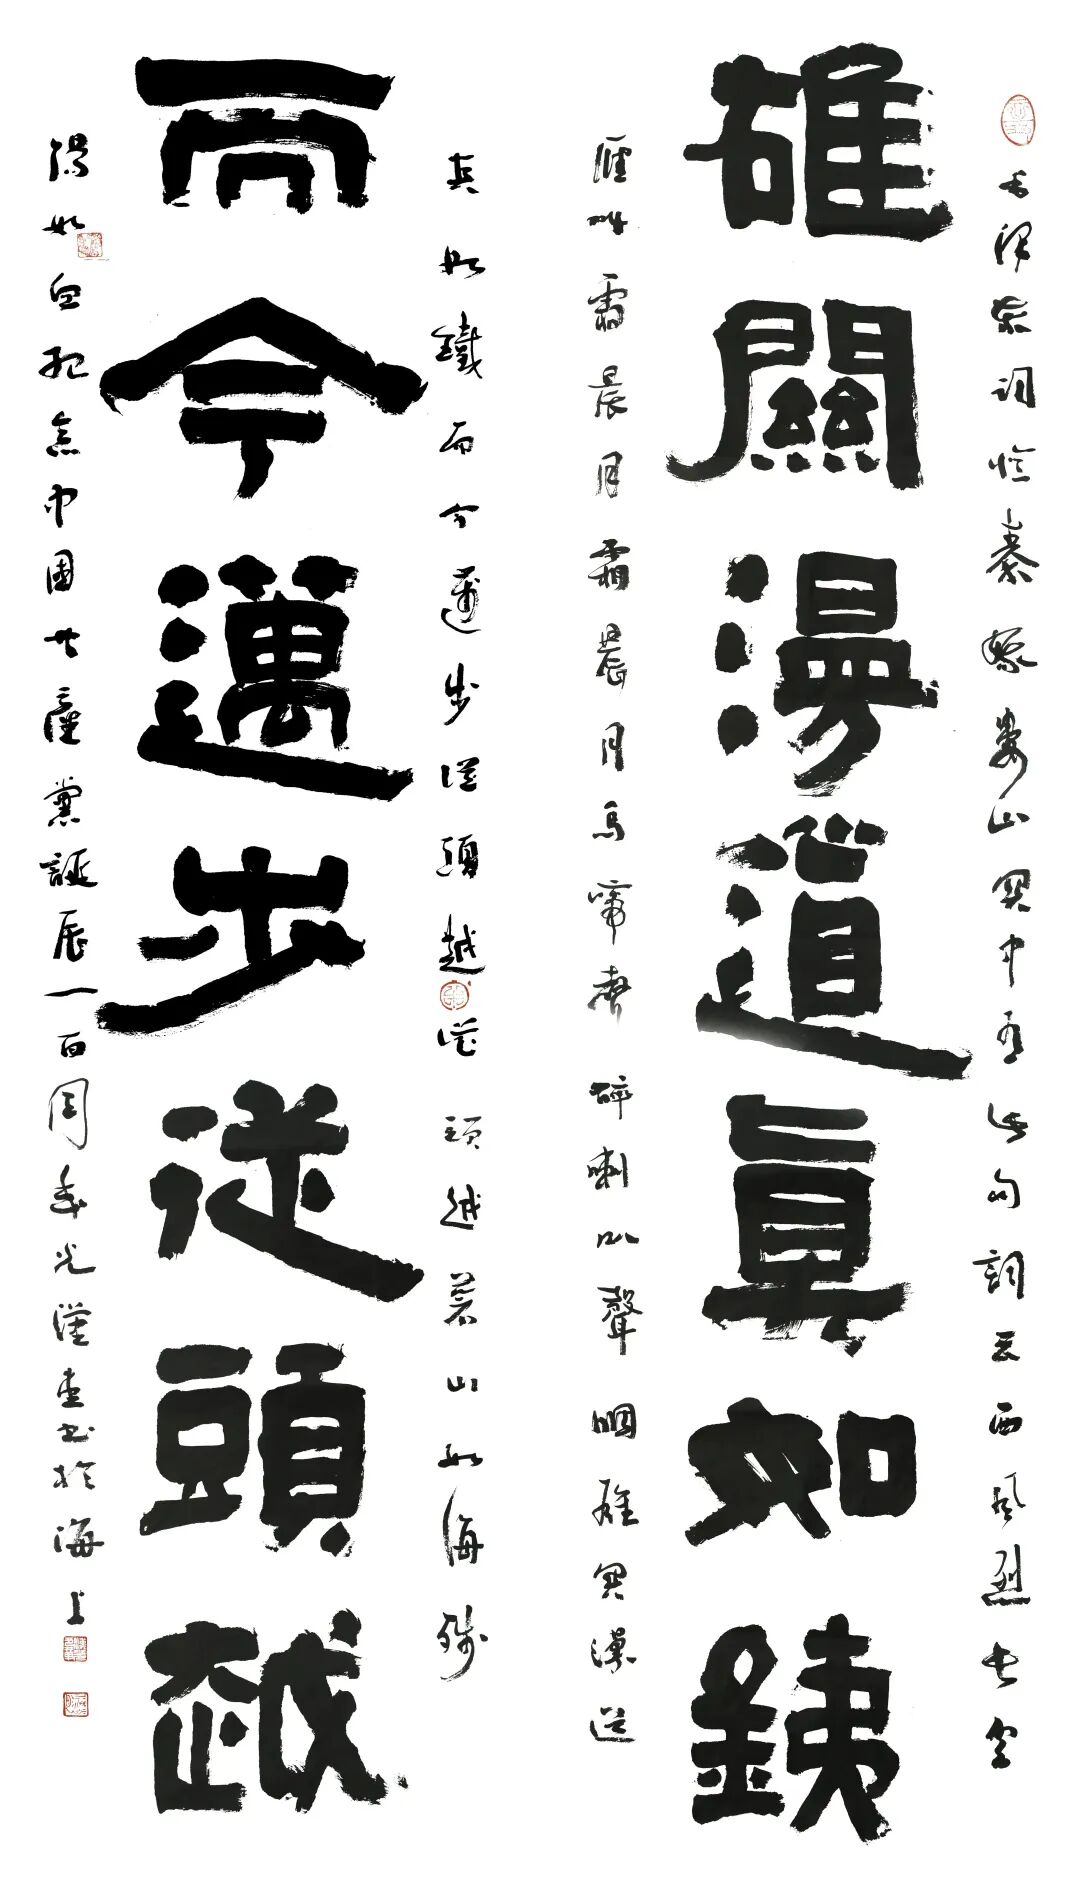 毛澤東詞憶秦娥婁山關中有此句詞云西風烈長空
雄關漫道真如銕
雁叫霜晨月霜晨月馬啼聲碎喇叭聲咽雄關漫道
真如鐵而今邁步從頭越從頭越蒼山如海殘
而今邁步從頭越
陽如血紀念中國共產黨誕辰一百周年光漢書於海上